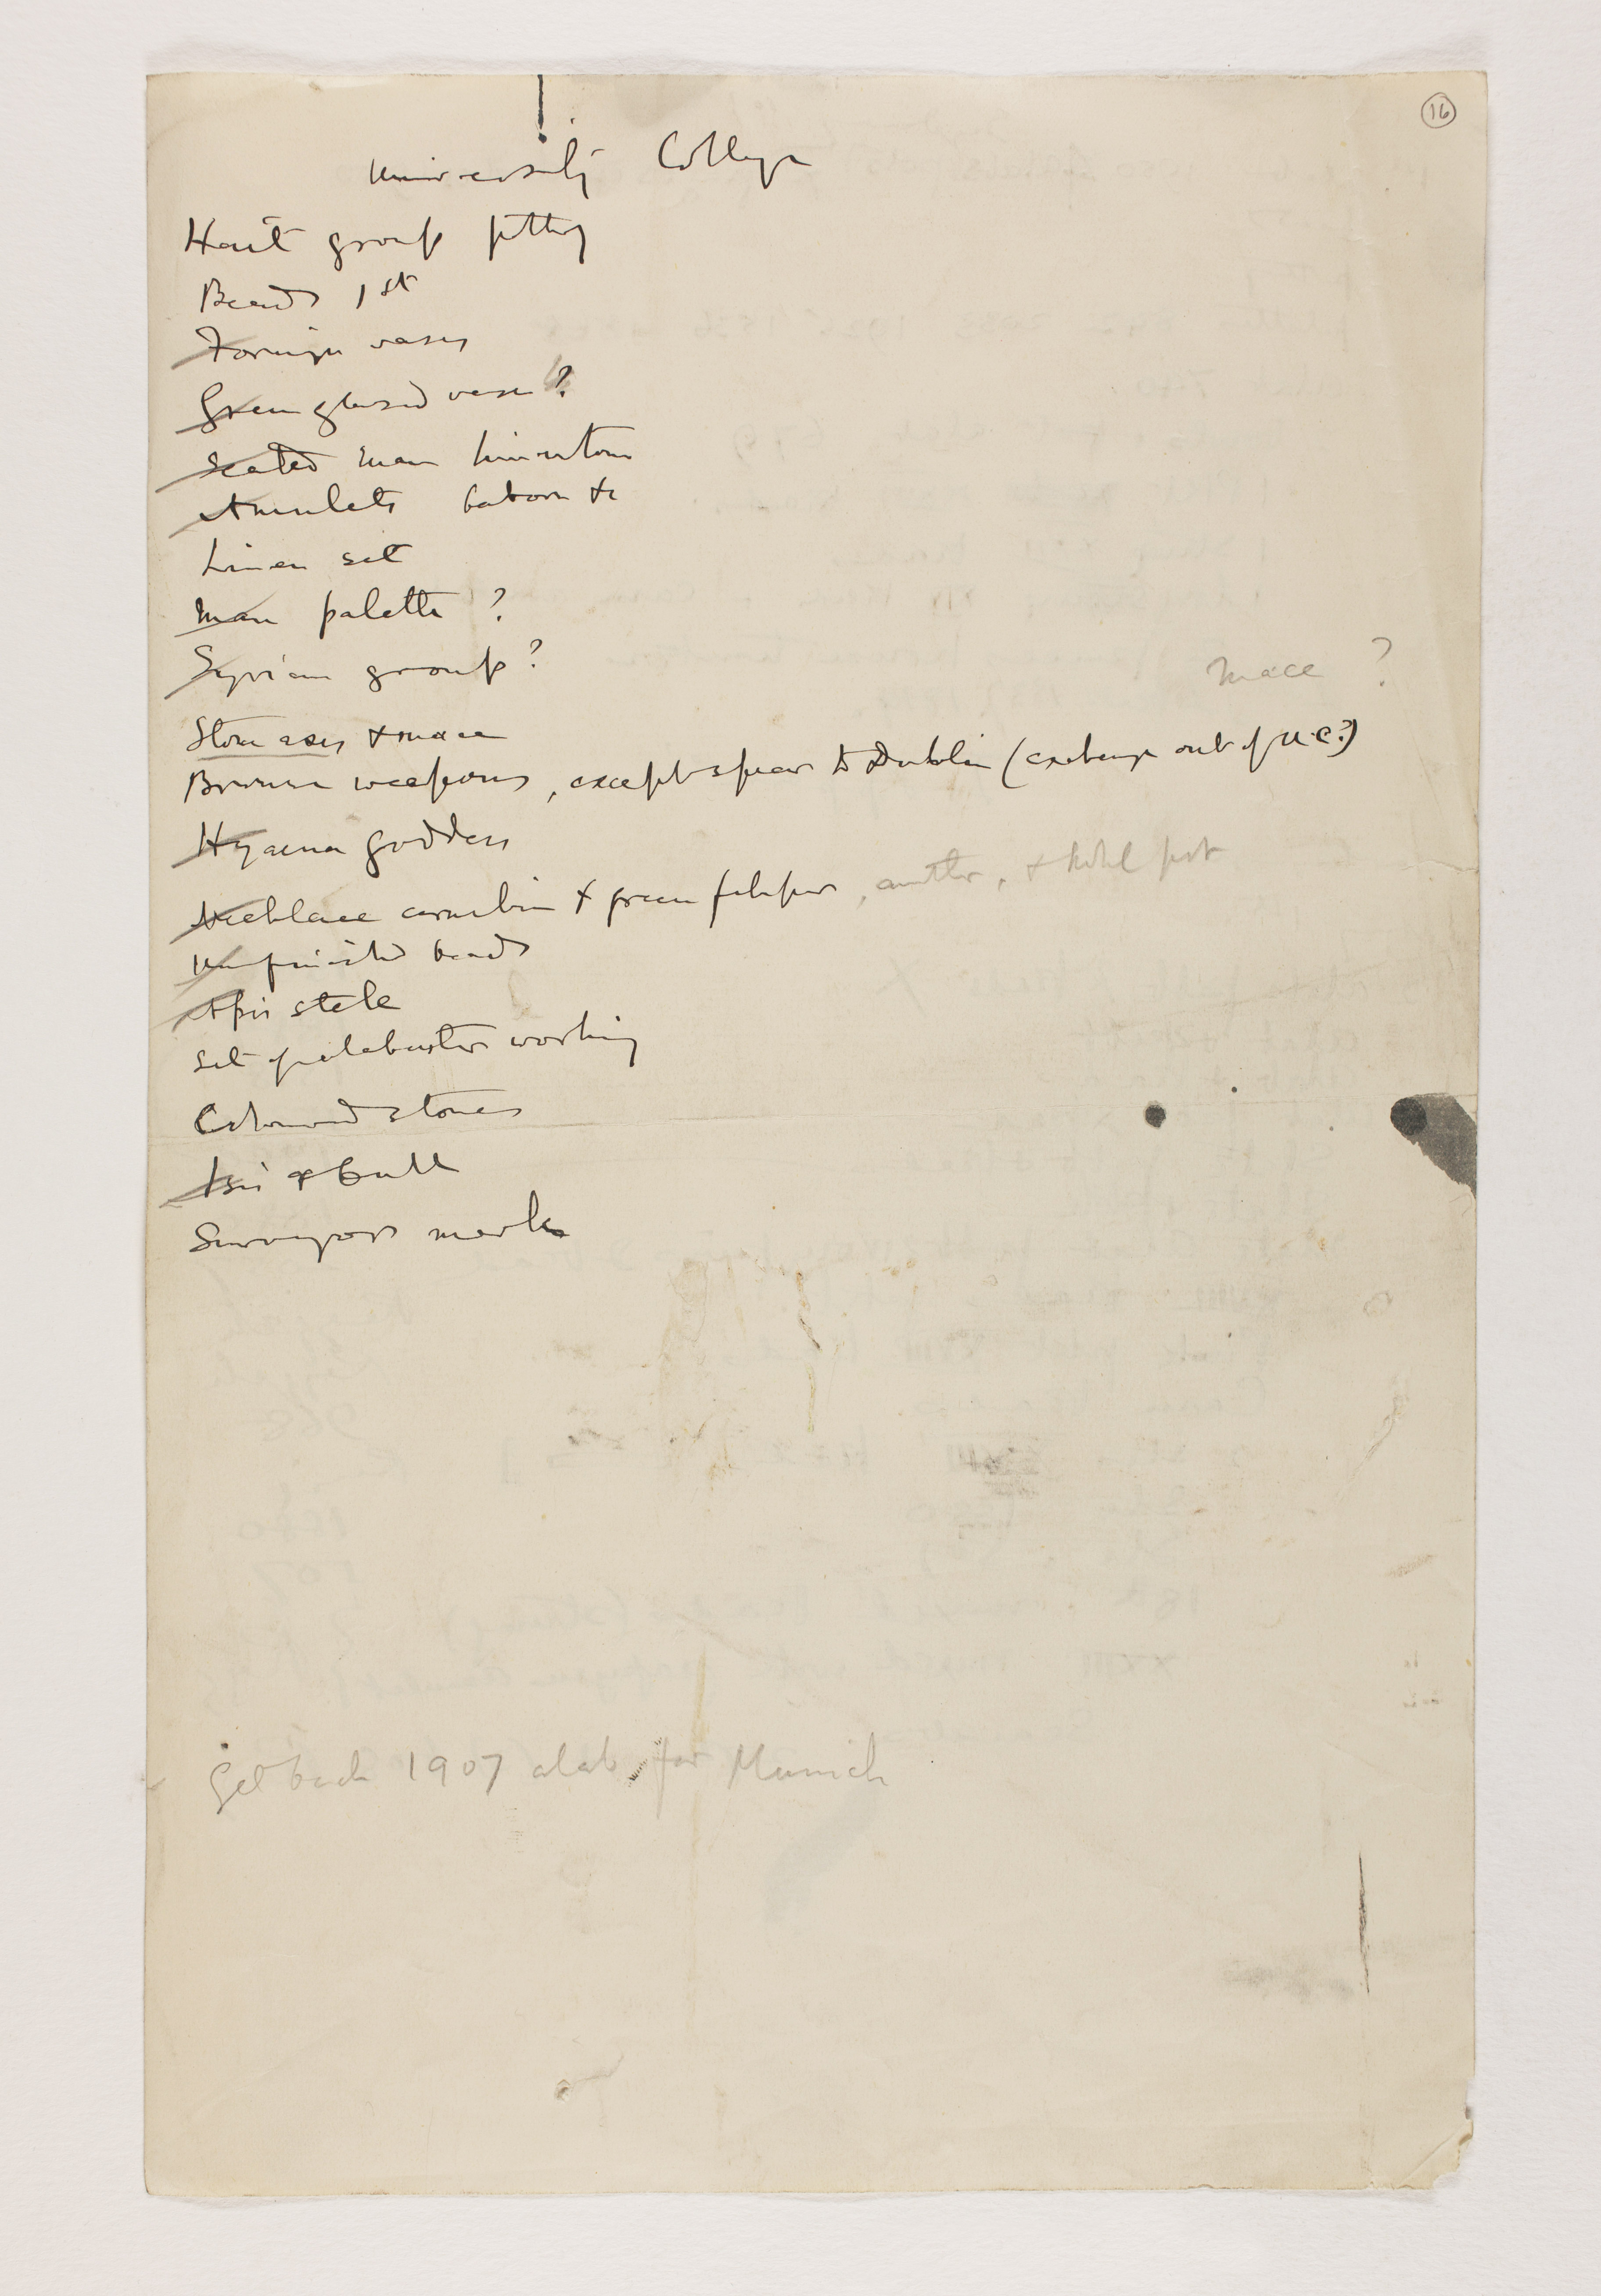 16
University College
Hait group pottery
Beads 1st
Foreign vases
Green glazed vase ?
Seated man limestone
Amulets baboon &c
Linen set
Man palette ?
Syrian group ?
Mace ?
Stone axes + mace
Bronze weapons, except spear to Dublin (exchange out of U.C.?)
Hyaena goddess
Necklace carnelian + green felspar, another, + kohl pot
Unfinished beads
Apis stele
Set of alabaster working
Coloured stones
Isis & bull
Surveyors marks
Get back 1907 alab. for Munich